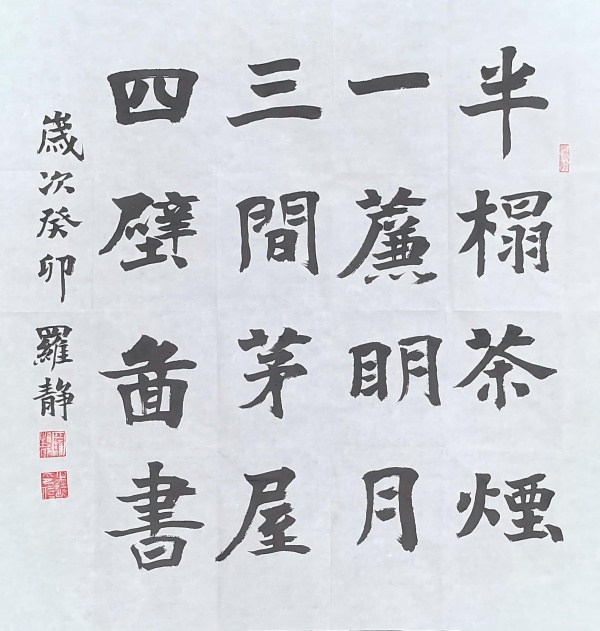 半榻茶煙
一薕眀月
三間茅屋
四壁啚書
歲次癸卯 羅静